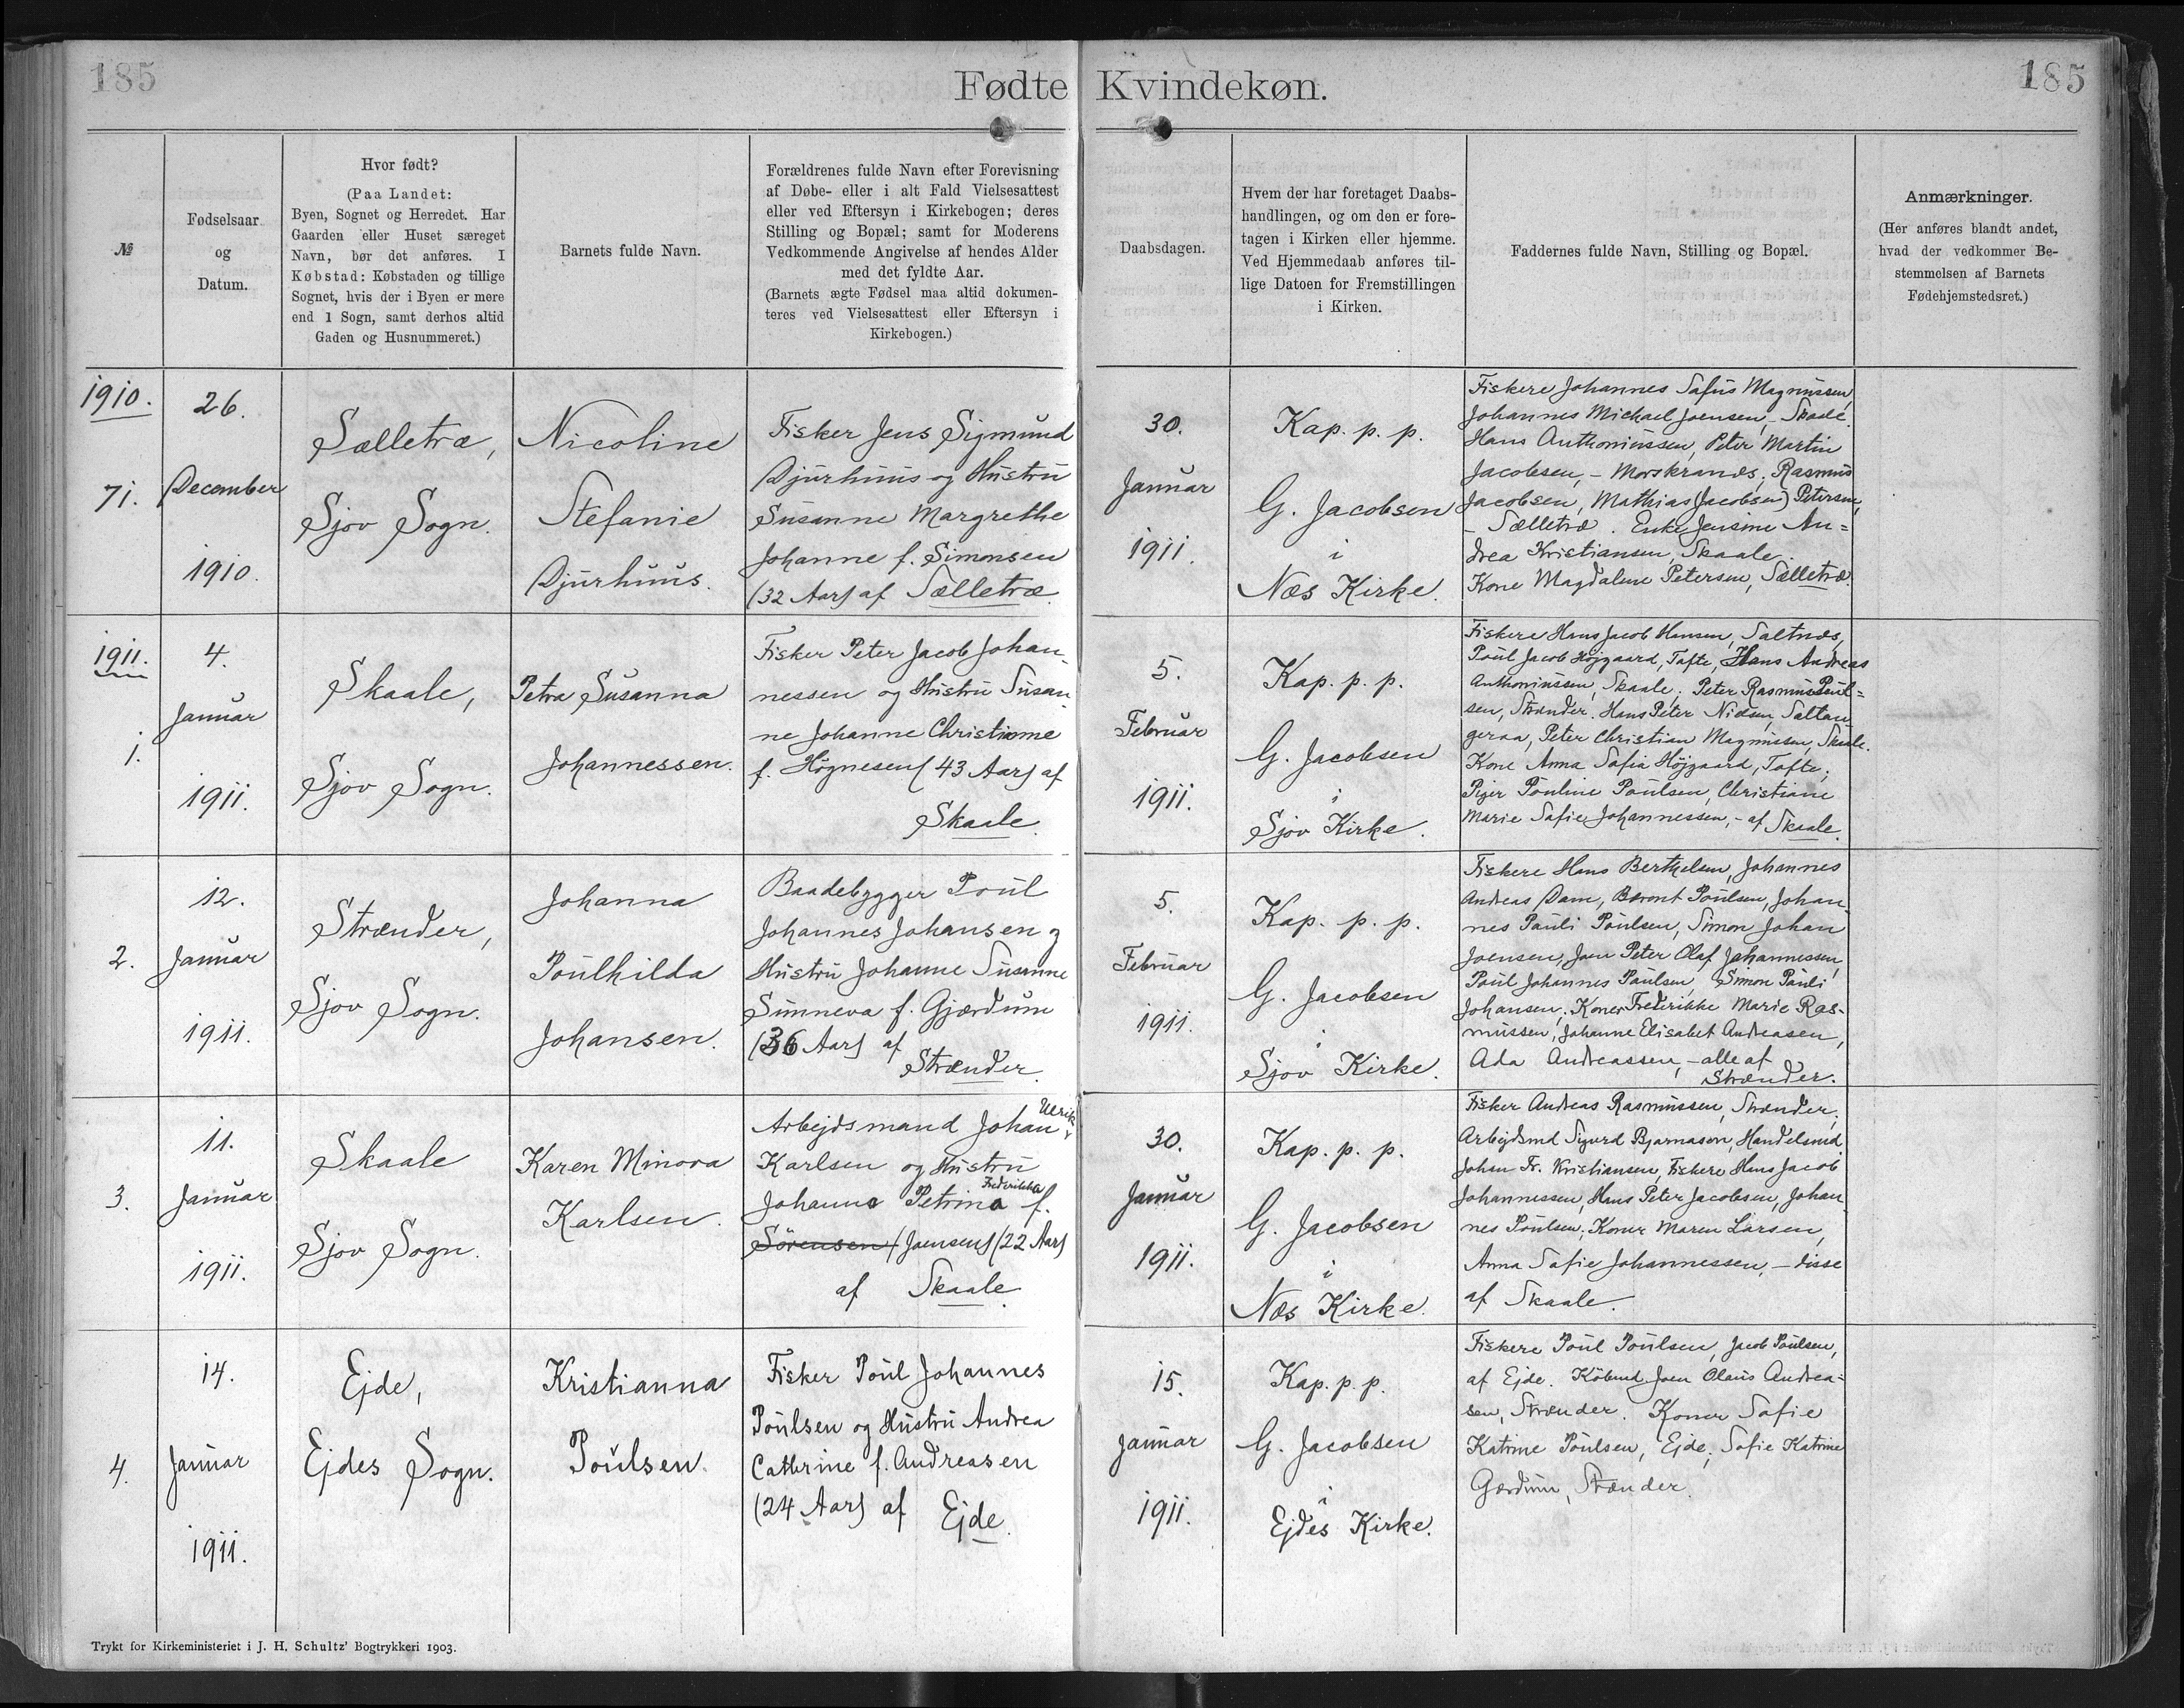 185
Fødte Kvindekøn.
185
№
Fødselsaar
og
Datum.
Hvor født?
(Paa Landet:
Byen, Sognet og Herredet. Har
Gaarden eller Huset særeget
Navn, bør det anføres. I
Købstad: Købstaden og tillige
Sognet, hvis der i Byen er mere
end 1 Sogn, samt derhos altid
Gaden og Husnummeret.)
Barnets fulde Navn.
Forældrenes fulde Navn efter Forevisning
af Døbe- eller i alt Fald Vielsesattest
eller ved Eftersyn i Kirkebogen; deres
Stilling og Bopæl; samt for Moderens
Vedkommende Angivelse af hendes Alder
med det fyldte Aar.
(Barnets ægte Fødsel maa altid dokumen-
teres ved Vielsesattest eller Eftersyn i
Kirkebogen.)
Daabsdagen.
Hvem der har foretaget Daabs-
handlingen, og om den er fore-
tagen i Kirken eller hjemme.
Ved Hjemmedaab anføres til-
lige Datoen for Fremstillingen
i Kirken.
Faddernes fulde Navn, Stilling og Bopæl.
Anmærkninger.
(Her anføres blandt andet,
hvad der vedkommer Be-
stemmelsen af Barnets
Fødehjemstedsret.)
1910.
71.
26.
December
1910.
Sælletræ,
Sjov Sogn.
Nicoline
Stefanie
Djurhuus.
Fisker Jens Sigmund
Djurhuus og Hustru
Susanne Margrethe
Johanne f. Simonsen
(32 Aar) af Sælletræ.
30.
Januar
1911.
Kap. p. p.
G. Jacobsen
i
Næs Kirke.
Fiskere Johannes Safus Magnussen,
Johannes Michael Joensen, - Skaale.
Hans Anthoniussen, Peter Martin
Jacobsen, - Morskranes; Rasmus
Jacobsen, Mathias (Jacobsen) Petersen,
- Sælletræ. Enke Jensine An=
drea Kristiansen, Skaale.
Kone Magdalene Petersen, Sælletræ.
1911.
1.
4.
Januar
1911.
Skaale,
Sjov Sogn.
Petra Susanna
Johannessen.
Fisker Peter Jacob Johan-
nessen og Hustru Susan-
ne Johanne Christianne
f. Høgnesen (43 Aar) af
Skaale.
5.
Februar
1911.
Kap. p. p.
G. Jacobsen
i
Sjov Kirke.
Fiskere Hans Jacob Hansen, Saltnæs,
Poul Jacob Højgaard, Tofte, Hans Andreas
Anthoniussen, Skaale; Peter Rasmus Poul=
sen, Strænder. Hans Peter Nielsen, Saltan-
geraa, Peter Christian Magnussen, Skaale.
Kone Anna Safia Højgaard, Tofte;
Piger Pouline Poulsen, Christiane
Marie Safie Johannessen, - af Skaale.
2.
12.
Januar
1911.
Strænder,
Sjov Sogn.
Johanna
Poulhilda
Johansen.
Baadebygger Poul
Johannes Johansen og
Hustru Johanne Susanne
Sunneva f. Gjærdum
(36 Aar) af
Strænder.
5.
Februar
1911.
Kap. p. p.
G. Jacobsen
i
Sjov Kirke.
Fiskere Hans Berthelsen, Johannes
Andreas Dam, Berent Poulsen, Johan-
nes Pauli Poulsen, Simon Johan
Joensen, Joen Peter Olaf Johannessen,
Poul Johannes Poulsen, Simon Pauli
Johansen; Koner Frederikke Marie Ras-
mussen, Johanne Elisabet Andreasen,
Ada Andreassen, - alle af
Strænder.
3.
11.
Januar
1911.
Skaale
Sjov Sogn.
Karen Minora
Karlsen.
Arbejdsmand Johan Ulrik
Karlsen og Hustru
Johanne Petrina Frederikka f.
Sörensen (Joensen) (22 Aar)
af Skaale.
30.
Januar
1911.
Kap. p. p.
G. Jacobsen
i
Næs Kirke.
Fisker Andreas Rasmussen, Strænder;
Arbejdsmd Sigurd Bjarnason, Handelsmd.
Johan Fr. Kristiansen, Fiskere Hans Jacob
Johannessen, Hans Peter Jacobsen, Johan-
nes Poulsen; Koner Maren Larsen,
Anna Safie Johannessen, - disse
af Skaale.
4.
14.
Januar
1911.
Ejde,
Ejdes Sogn.
Kristianna
Poulsen.
Fisker Poul Johannes
Poulsen og Hustru Andrea
Cathrine f. Andreasen
(24 Aar) af Ejde.
15.
Januar
1911.
Kap. p. p.
G. Jacobsen
i
Ejdes Kirke.
Fiskere Poul Poulsen, Jacob Poulsen,
af Ejde. Købmd Joen Olaus Andrea=
sen, Strænder. Koner Safie
Katrine Poulsen, Ejde; Sofie Katrine
Gærdum, Strænder.
Trykt for Kirkeministeriet i J. H. Schultz' Bogtrykkeri 1903.